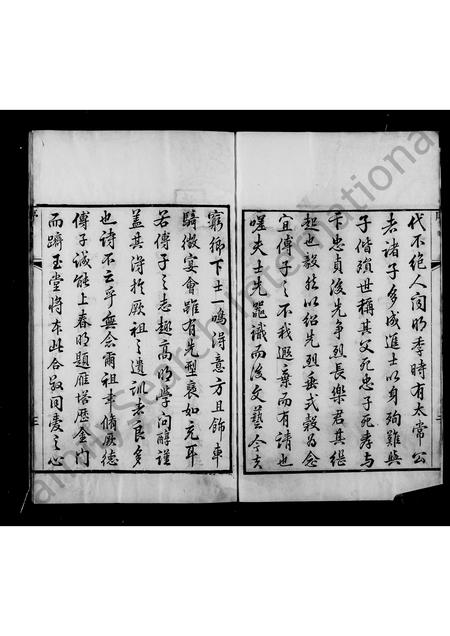 代不絕人閩明季時有太常公
者諸子多成進士以身殉難與
子偕殞世稱其父死忠子死孝與
干忠貞後先爭烈長樂君其繼
起也毅然以紹先烈垂式穀為念
宜傅子之不我遐棄而有請也
嗟夫士先器識而後文藝今夫
窮鄉下士一鳴得意方且飾車
騎徵宴會雖有先型褎如充耳
若傅子之志趣高明學問醇謹
蓋其得於厥祖之遺訓者良多
也詩不云乎無念爾祖聿脩厥德
傅子誠能上春明題雁塔歷金門
而躋玉堂將本此合敬同愛之心
序
三
Search International